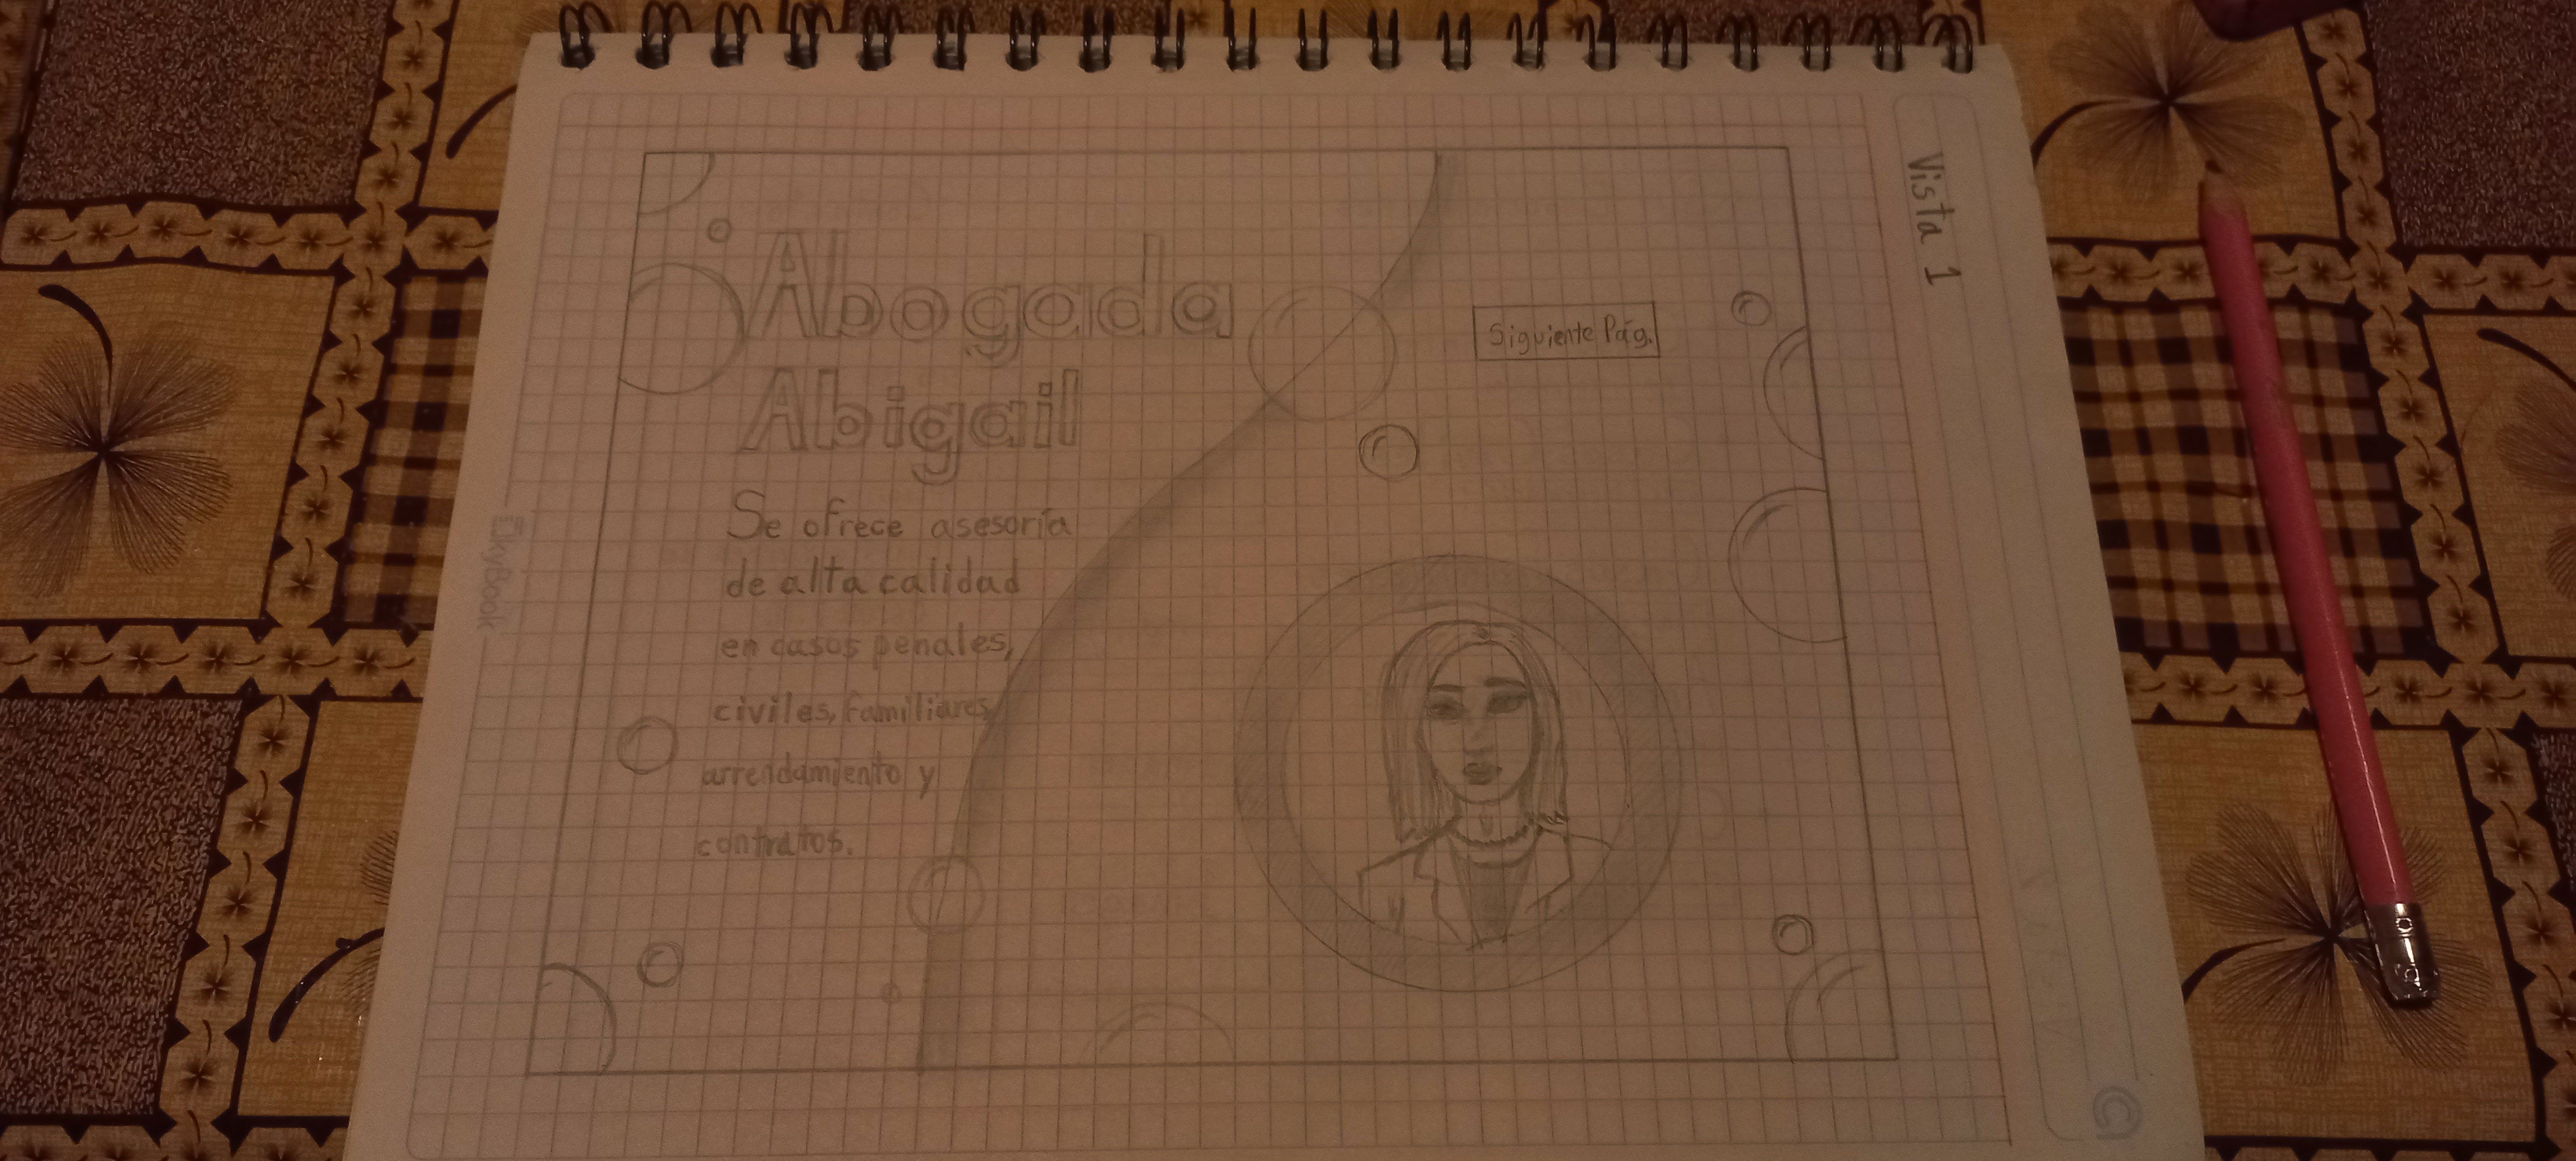 Vista 1
Abogada
Abigail
Siguiente Pág.
Se ofrece asesoría
de alta calidad
en casos penales,
civiles, familiares,
arrendamiento y
contratos.
SkyBook